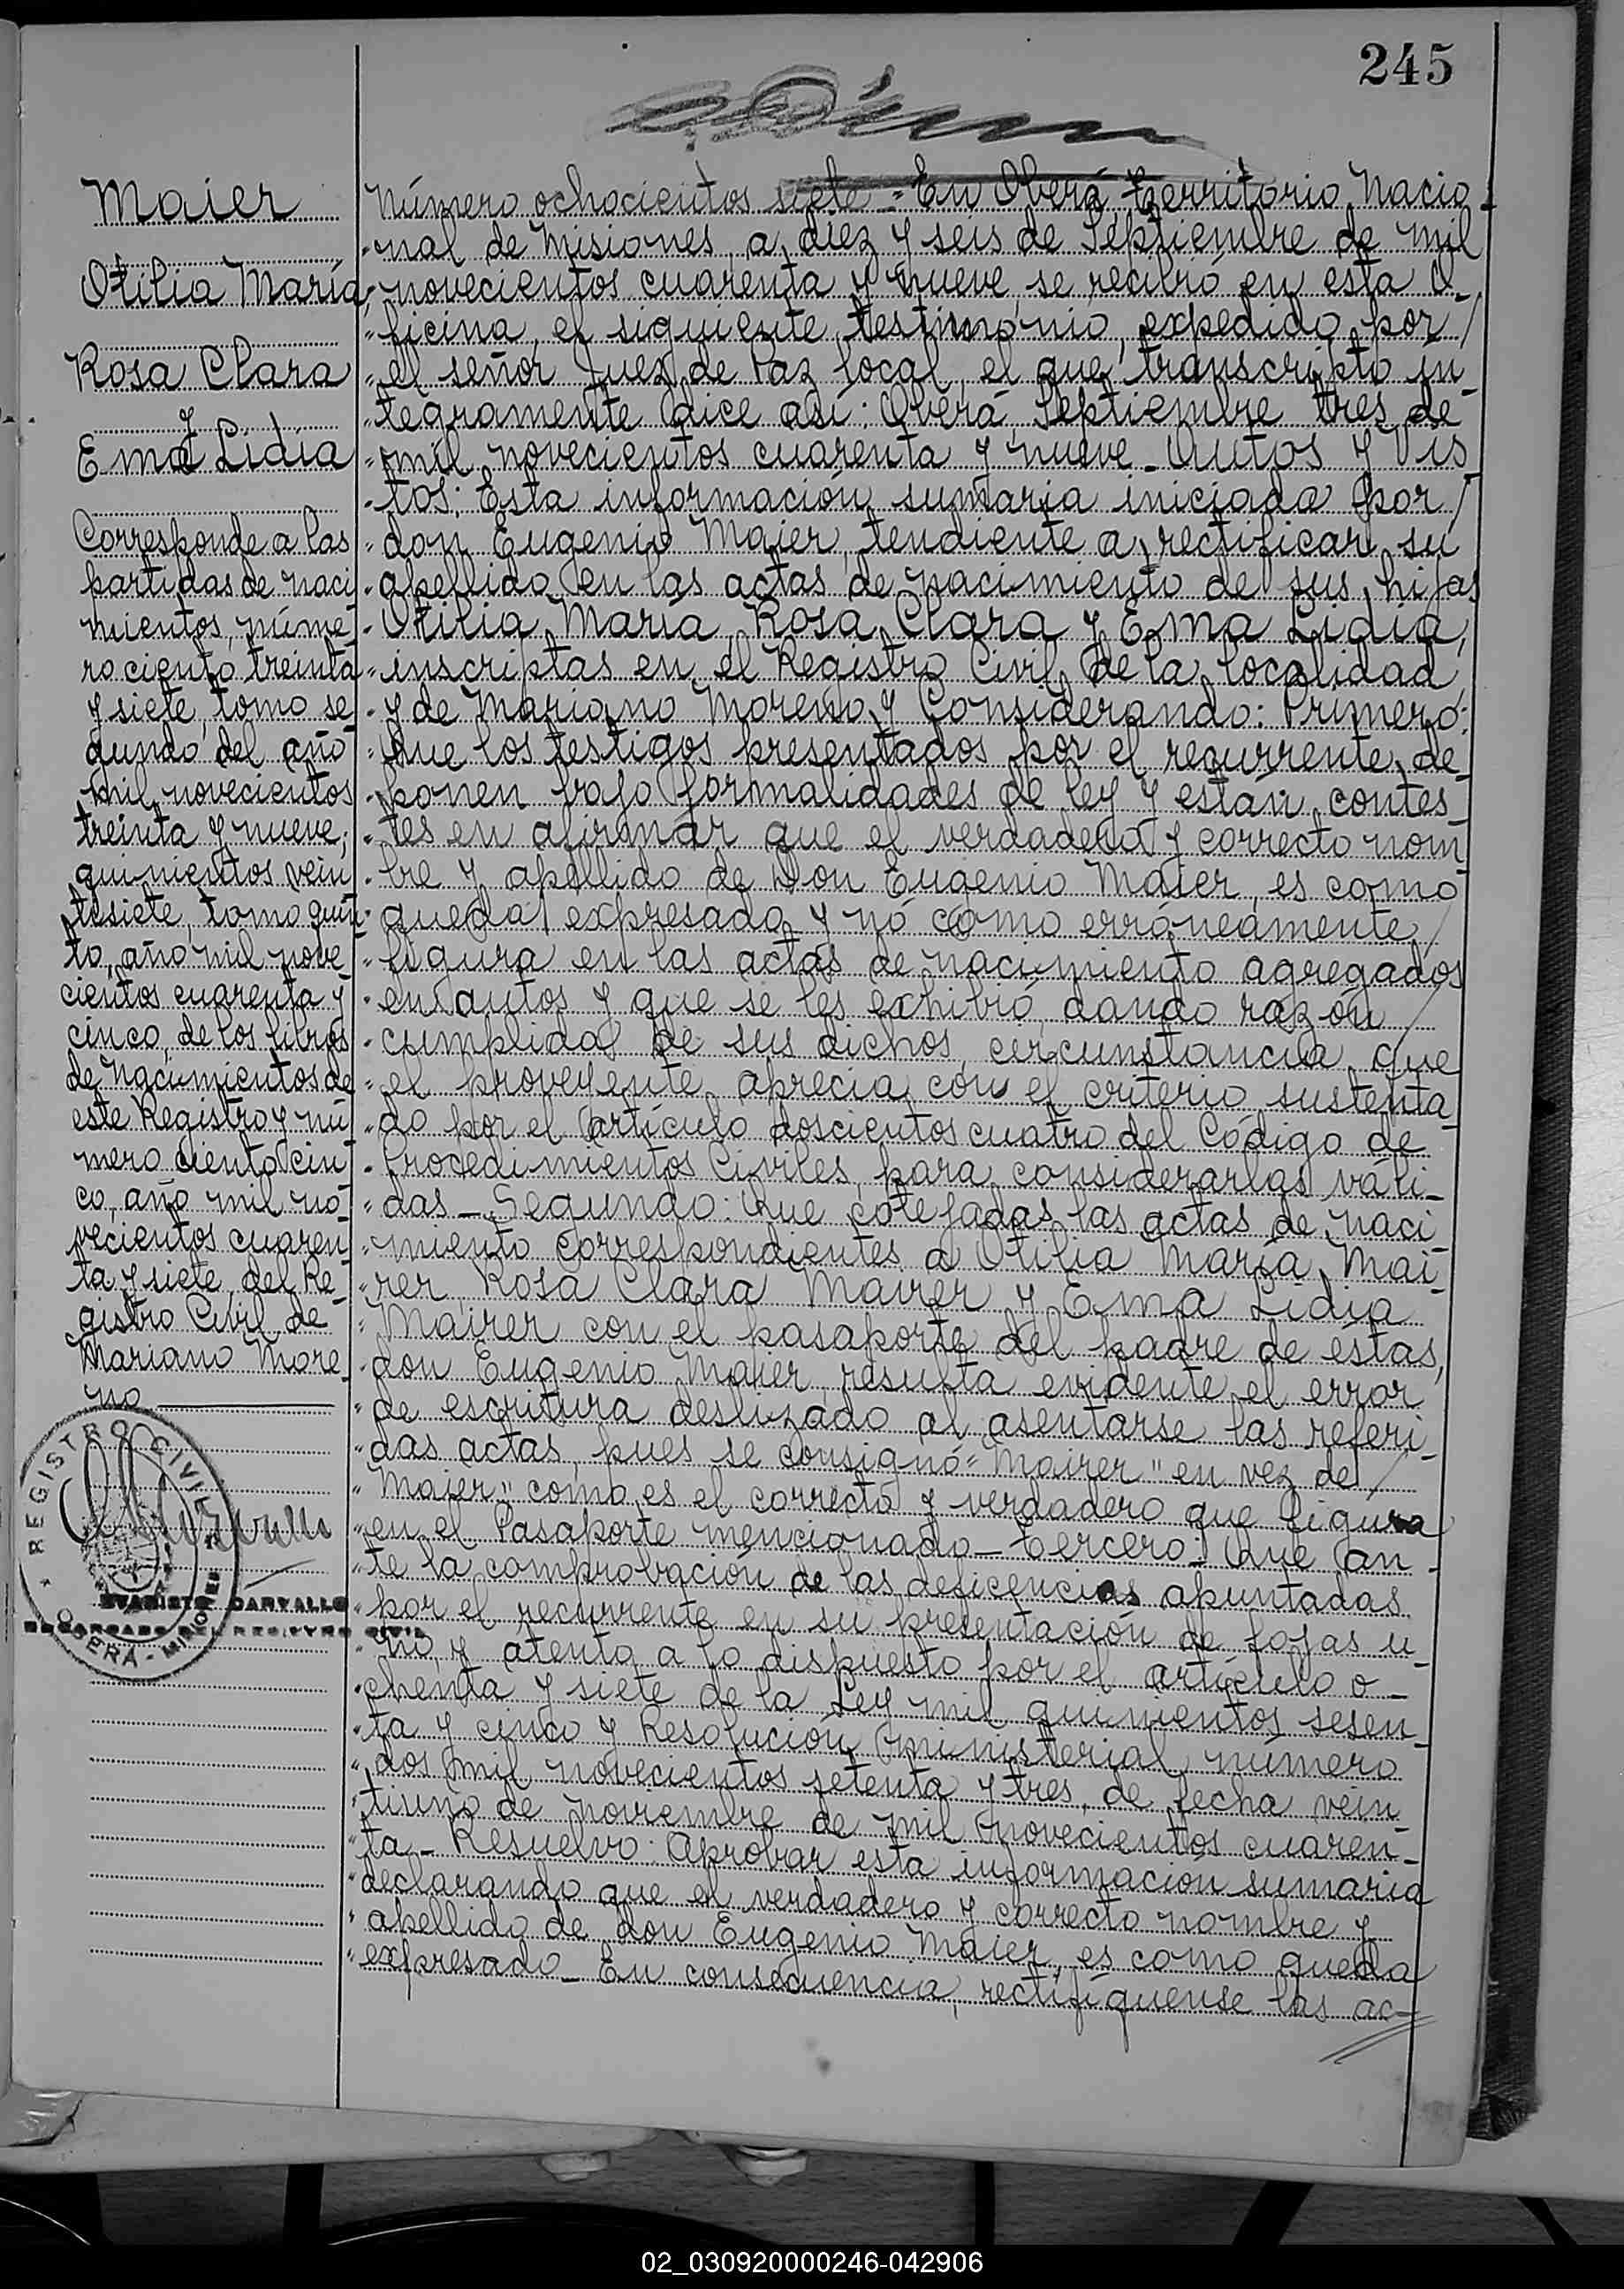 245
Maier
Otilia María,
Rosa Clara
y
Ema Lidia
Corresponde a las
partidas de naci-
mientos, núme-
ro ciento treinta
y siete, tomo se-
gundo, del año
mil novecientos
treinta y nueve;
quinientos vein-
tisiete, tomo quin-
to, año mil nove-
cientos cuarenta y
cinco, de los libros
de Nacimientos de
este Registro y nú-
mero ciento cin-
co, año mil no-
vecientos cuaren-
ta y siete, del Re-
gistro Civil de
Mariano More-
no
REGISTRO CIVIL
CARVALLO
ENCARGADO DEL REGISTRO CIVIL
OBERÁ - MISIONES
Número ochocientos siete = En Oberá, Territorio Nacio-
nal de Misiones, a diez y seis de Septiembre de mil
novecientos cuarenta y nueve, se recibió en esta O-
ficina, el siguiente testimonio, expedido por
el señor Juez de Paz local, el que transcripto ín-
tegramente dice así: Oberá, Septiembre tres de
mil novecientos cuarenta y nueve - Autos y Vis-
tos: Esta información sumaria iniciada por
don Eugenio Maier, tendiente a rectificar su
apellido en las actas de nacimiento de sus hijas
Otilia María, Rosa Clara y Ema Lidia,
inscriptas en el Registro Civil de la localidad,
y de Mariano Moreno y Considerando: Primero:
Que los testigos presentados por el recurrente de-
ponen bajo formalidades de ley y están contes-
tes en afirmar que el verdadero y correcto nom-
bre y apellido de Don Eugenio Maier, es como
queda expresado y nó como erróneamente
figura en las actas de nacimiento agregados
en autos y que se les exhibió, dando razón
cumplida de sus dichos, circunstancia que
el proveyente aprecia con el criterio sustenta-
do por el artículo doscientos cuatro del Código de
Procedimientos Civiles, para considerarlas váli-
das - Segundo: Que cotejadas las actas de naci-
miento correspondientes a Otilia María Mai-
rer, Rosa Clara Mairer y Ema Lidia
Mairer con el pasaporte del padre de éstas,
don Eugenio Maier, resulta evidente el error
de escritura deslizado al asentarse las referi-
das actas, pues se consignó "Mairer" en vez de
"Maier" como es el correcto y verdadero que figura
en el Pasaporte mencionado - Tercero: Que an-
te la comprobación de las deficencias apuntadas
por el recurrente en su presentación de fojas u-
no, y atento a lo dispuesto por el artículo o-
chenta y siete de la Ley mil quinientos sesen-
ta y cinco y Resolución ministerial número
dos mil novecientos setenta y tres, de fecha vein-
tiuno de noviembre de mil novecientos cuaren-
ta - Resuelvo: Aprobar esta información sumaria
declarando que el verdadero y correcto nombre y
apellido de don Eugenio Maier, es como queda
expresado - En consecuencia, rectifíquense las ac-
02_030920000246-042906